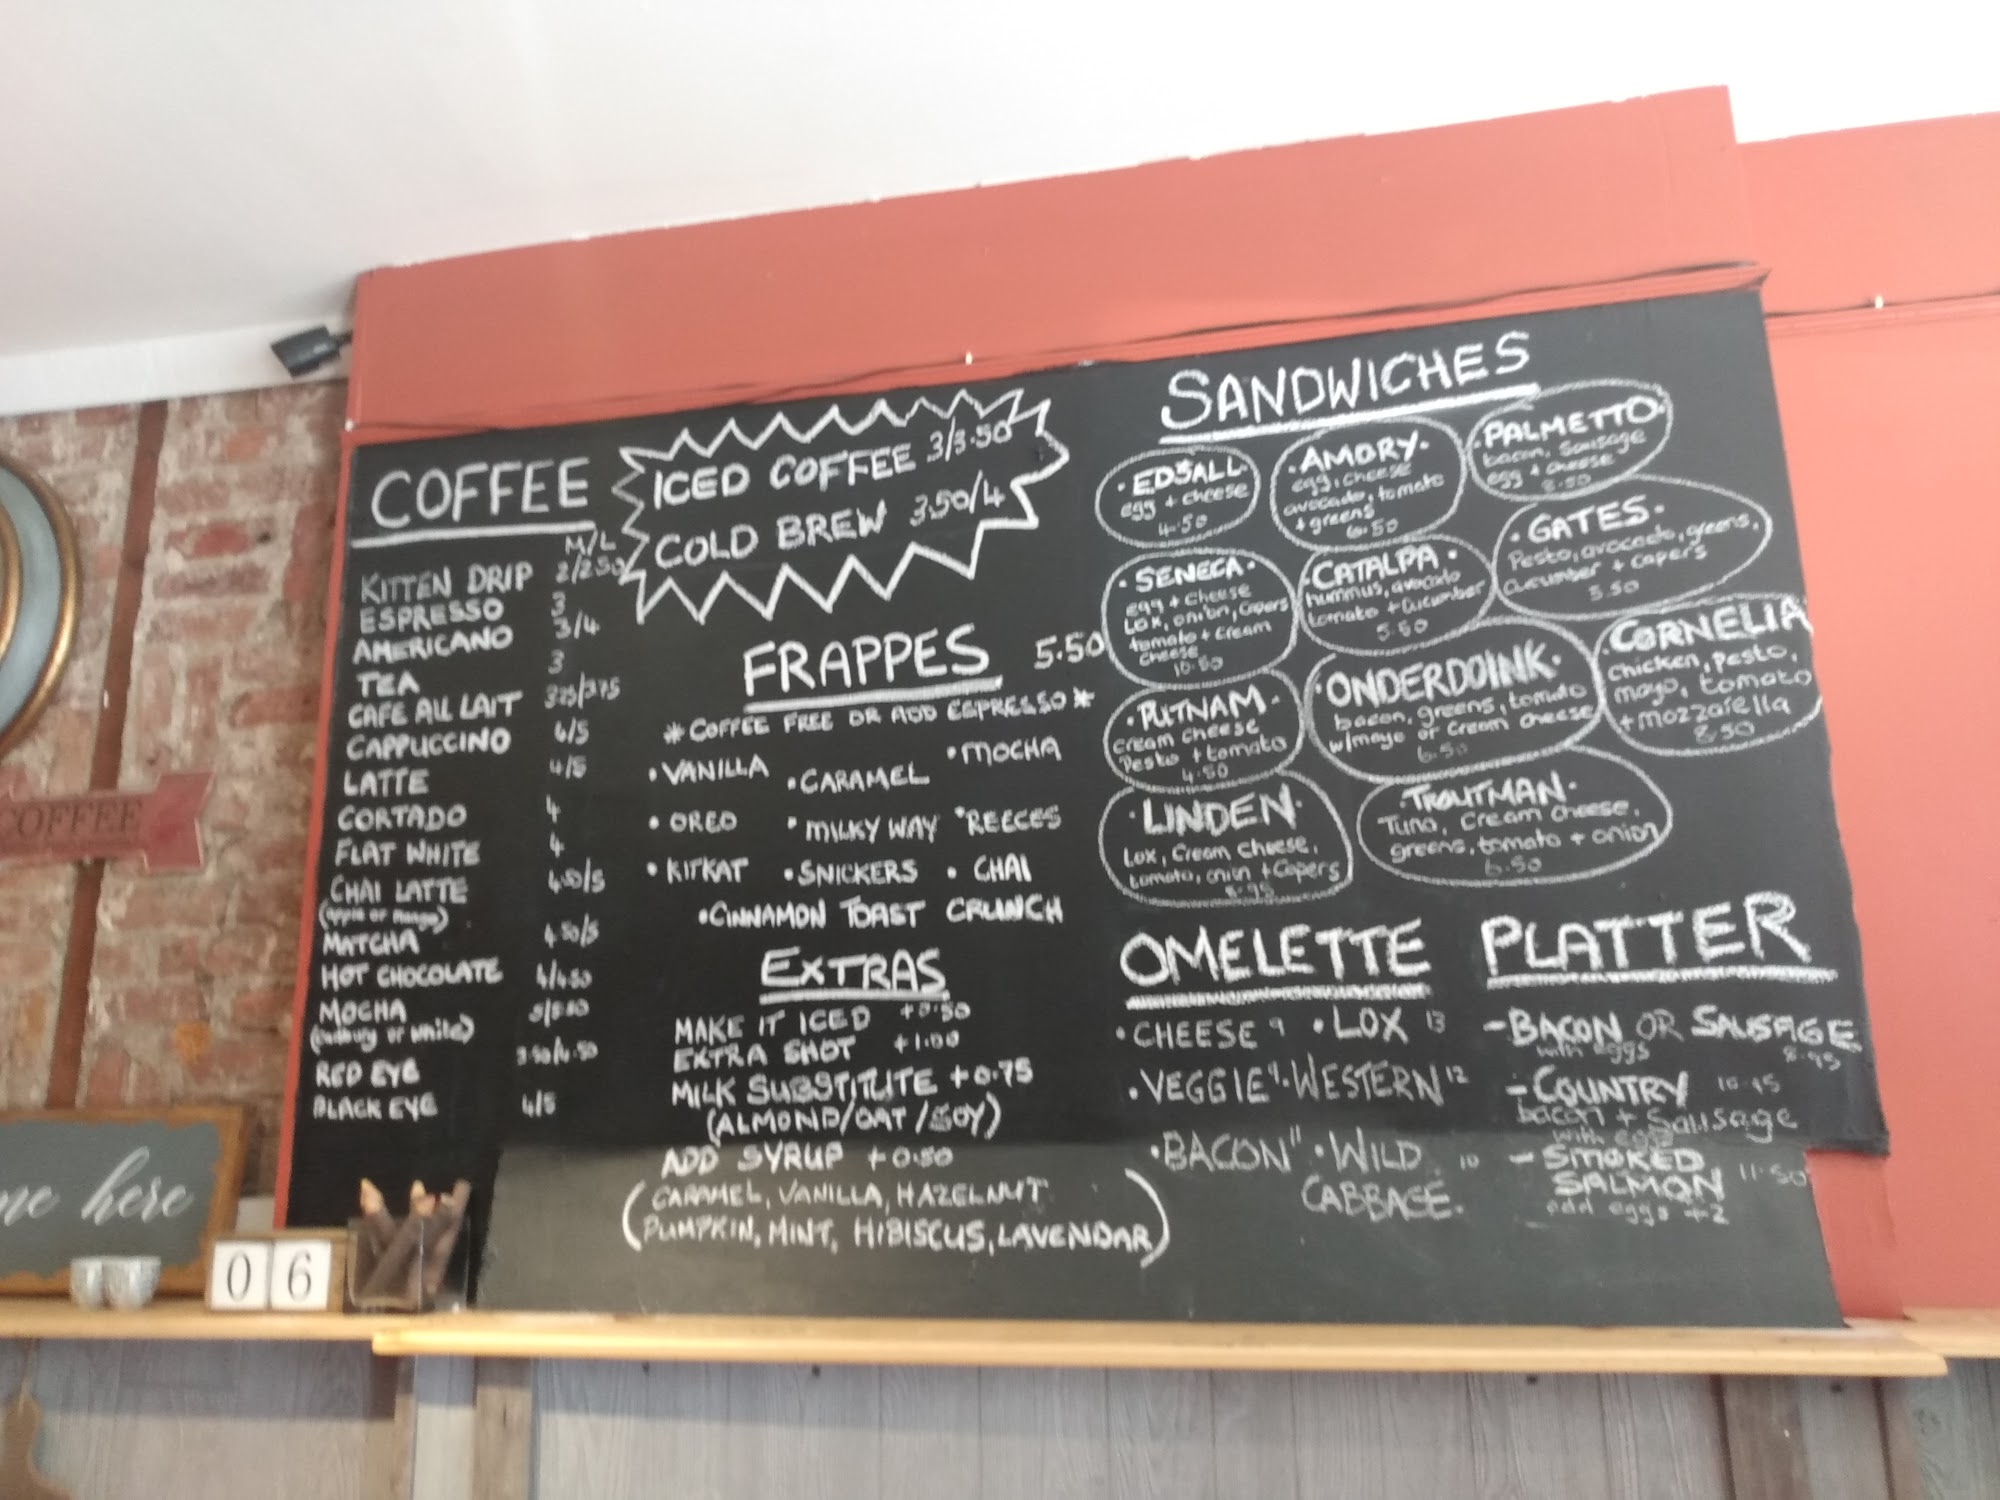 COFFEE
M/L
KITTEN DRIP 2/2.50
ESPRESSO 3
AMERICANO 3/4
TEA 3
CAFE AU LAIT 3.25/3.75
CAPPUCCINO 4/5
LATTE 4/5
CORTADO 4
FLAT WHITE 4
CHAI LATTE 4.50/5
(apple or mango)
MATCHA 4.50/5
HOT CHOCOLATE 4/4.50
MOCHA 5/5.50
(cadbury or white)
RED EYE 3.50/4.50
BLACK EYE 4/5
ICED COFFEE 3/3.50
COLD BREW 3.50/4
FRAPPES 5.50
*COFFEE FREE OR ADD ESPRESSO*
• VANILLA • CARAMEL • MOCHA
• OREO • MILKY WAY • REECES
• KITKAT • SNICKERS • CHAI
• CINNAMON TOAST CRUNCH
EXTRAS
MAKE IT ICED +0.50
EXTRA SHOT +1.00
MILK SUBSTITUTE +0.75
(ALMOND/OAT/SOY)
ADD SYRUP +0.50
(CARAMEL, VANILLA, HAZELNUT
PUMPKIN, MINT, HIBISCUS, LAVENDAR)
SANDWICHES
• EDSALL •
egg + cheese
4.50
• AMORY •
egg, cheese
avocado, tomato
+ greens
6.50
• PALMETTO •
bacon, Sausage
egg + cheese
8.50
• SENECA •
egg + Cheese
Lox, onion, Capers
tomato + Cream
Cheese
10.50
• CATALPA •
hummus, avocado
tomato + Cucumber
5.50
• GATES •
Pesto, avocado, greens,
Cucumber + Capers
5.50
• PUTNAM •
cream cheese
Pesto + tomato
4.50
• ONDERDOINK •
bacon, greens, tomato
w/mayo or Cream cheese
6.50
• CORNELIA •
chicken, Pesto,
mayo, tomato
+ mozzarella
8.50
• LINDEN •
Lox, Cream Cheese,
tomato, onion + Capers
8.95
• TROUTMAN •
Tuna, Cream cheese,
greens, tomato + onion
6.50
OMELETTE
• CHEESE 9 • LOX 13
• VEGGIE 9 • WESTERN 12
• BACON 11 • WILD 10
CABBAGE •
PLATTER
- BACON OR SAUSAGE
with eggs 8.95
- COUNTRY 10.45
bacon + Sausage
with eggs
- SMOKED
SALMON 11.50
add eggs +2
COFFEE
here
0 6